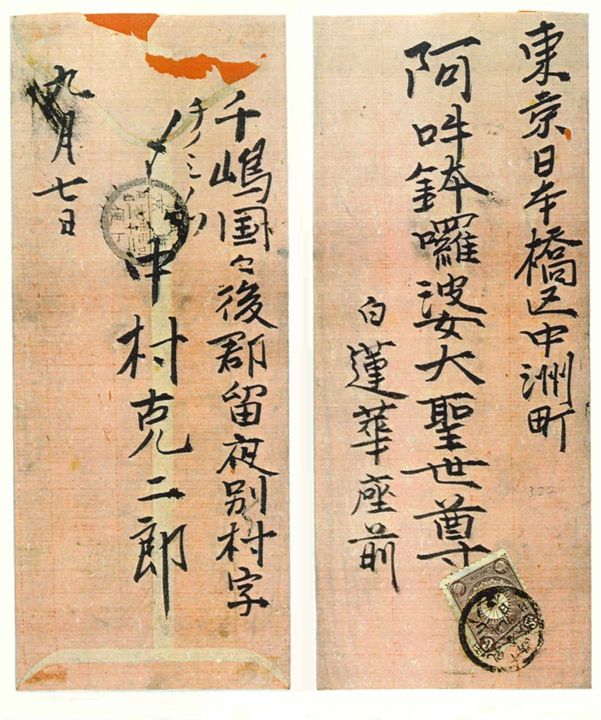 東京日本橋区中洲町
阿吽鉢囉婆大聖世尊
白蓮華座前
322
千嶋国々後郡留夜別村字
中村克二郎
九月七日